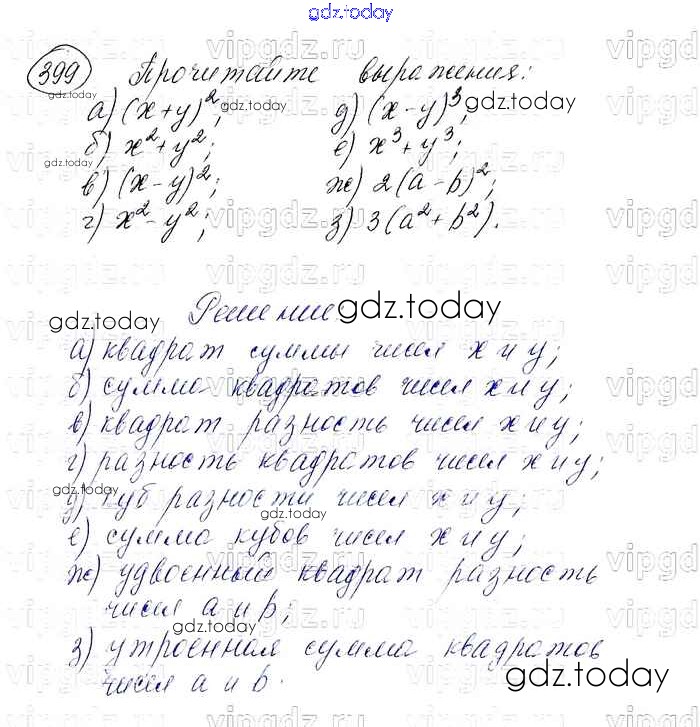 gdz.today
399 Прочитайте выражения:
а) (x+y)²; д) (x-y)³;
б) x²+y²; е) x³+y³;
в) (x-y)²; ж) 2(a-b)²;
г) x²-y²; з) 3(a²+b²).
Решение
а) квадрат суммы чисел x и y;
б) сумма квадратов чисел x и y;
в) квадрат разность чисел x и y;
г) разность квадратов чисел x и y;
д) куб разности чисел x и y;
е) сумма кубов чисел x и y;
ж) удвоенный квадрат разность
чисел a и b;
з) утроенная сумма квадратов
чисел a и b.